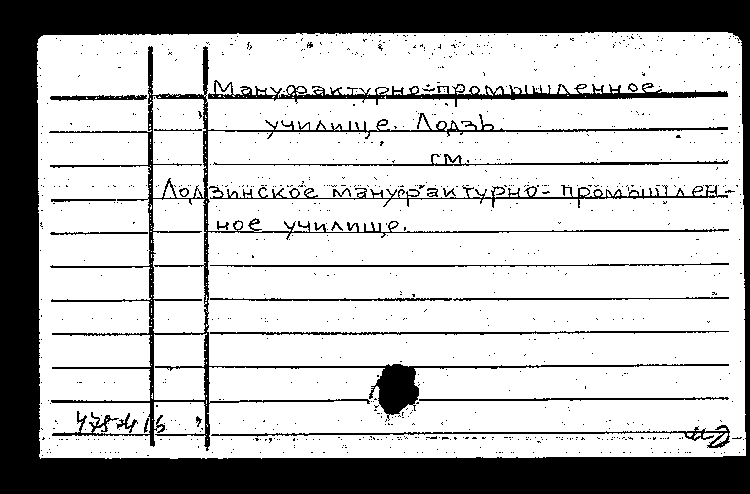 Мануфактурно-промышленное
училище. Лодзь.
см.
Лодзинское мануфактурно-промышлен-
ное училище.